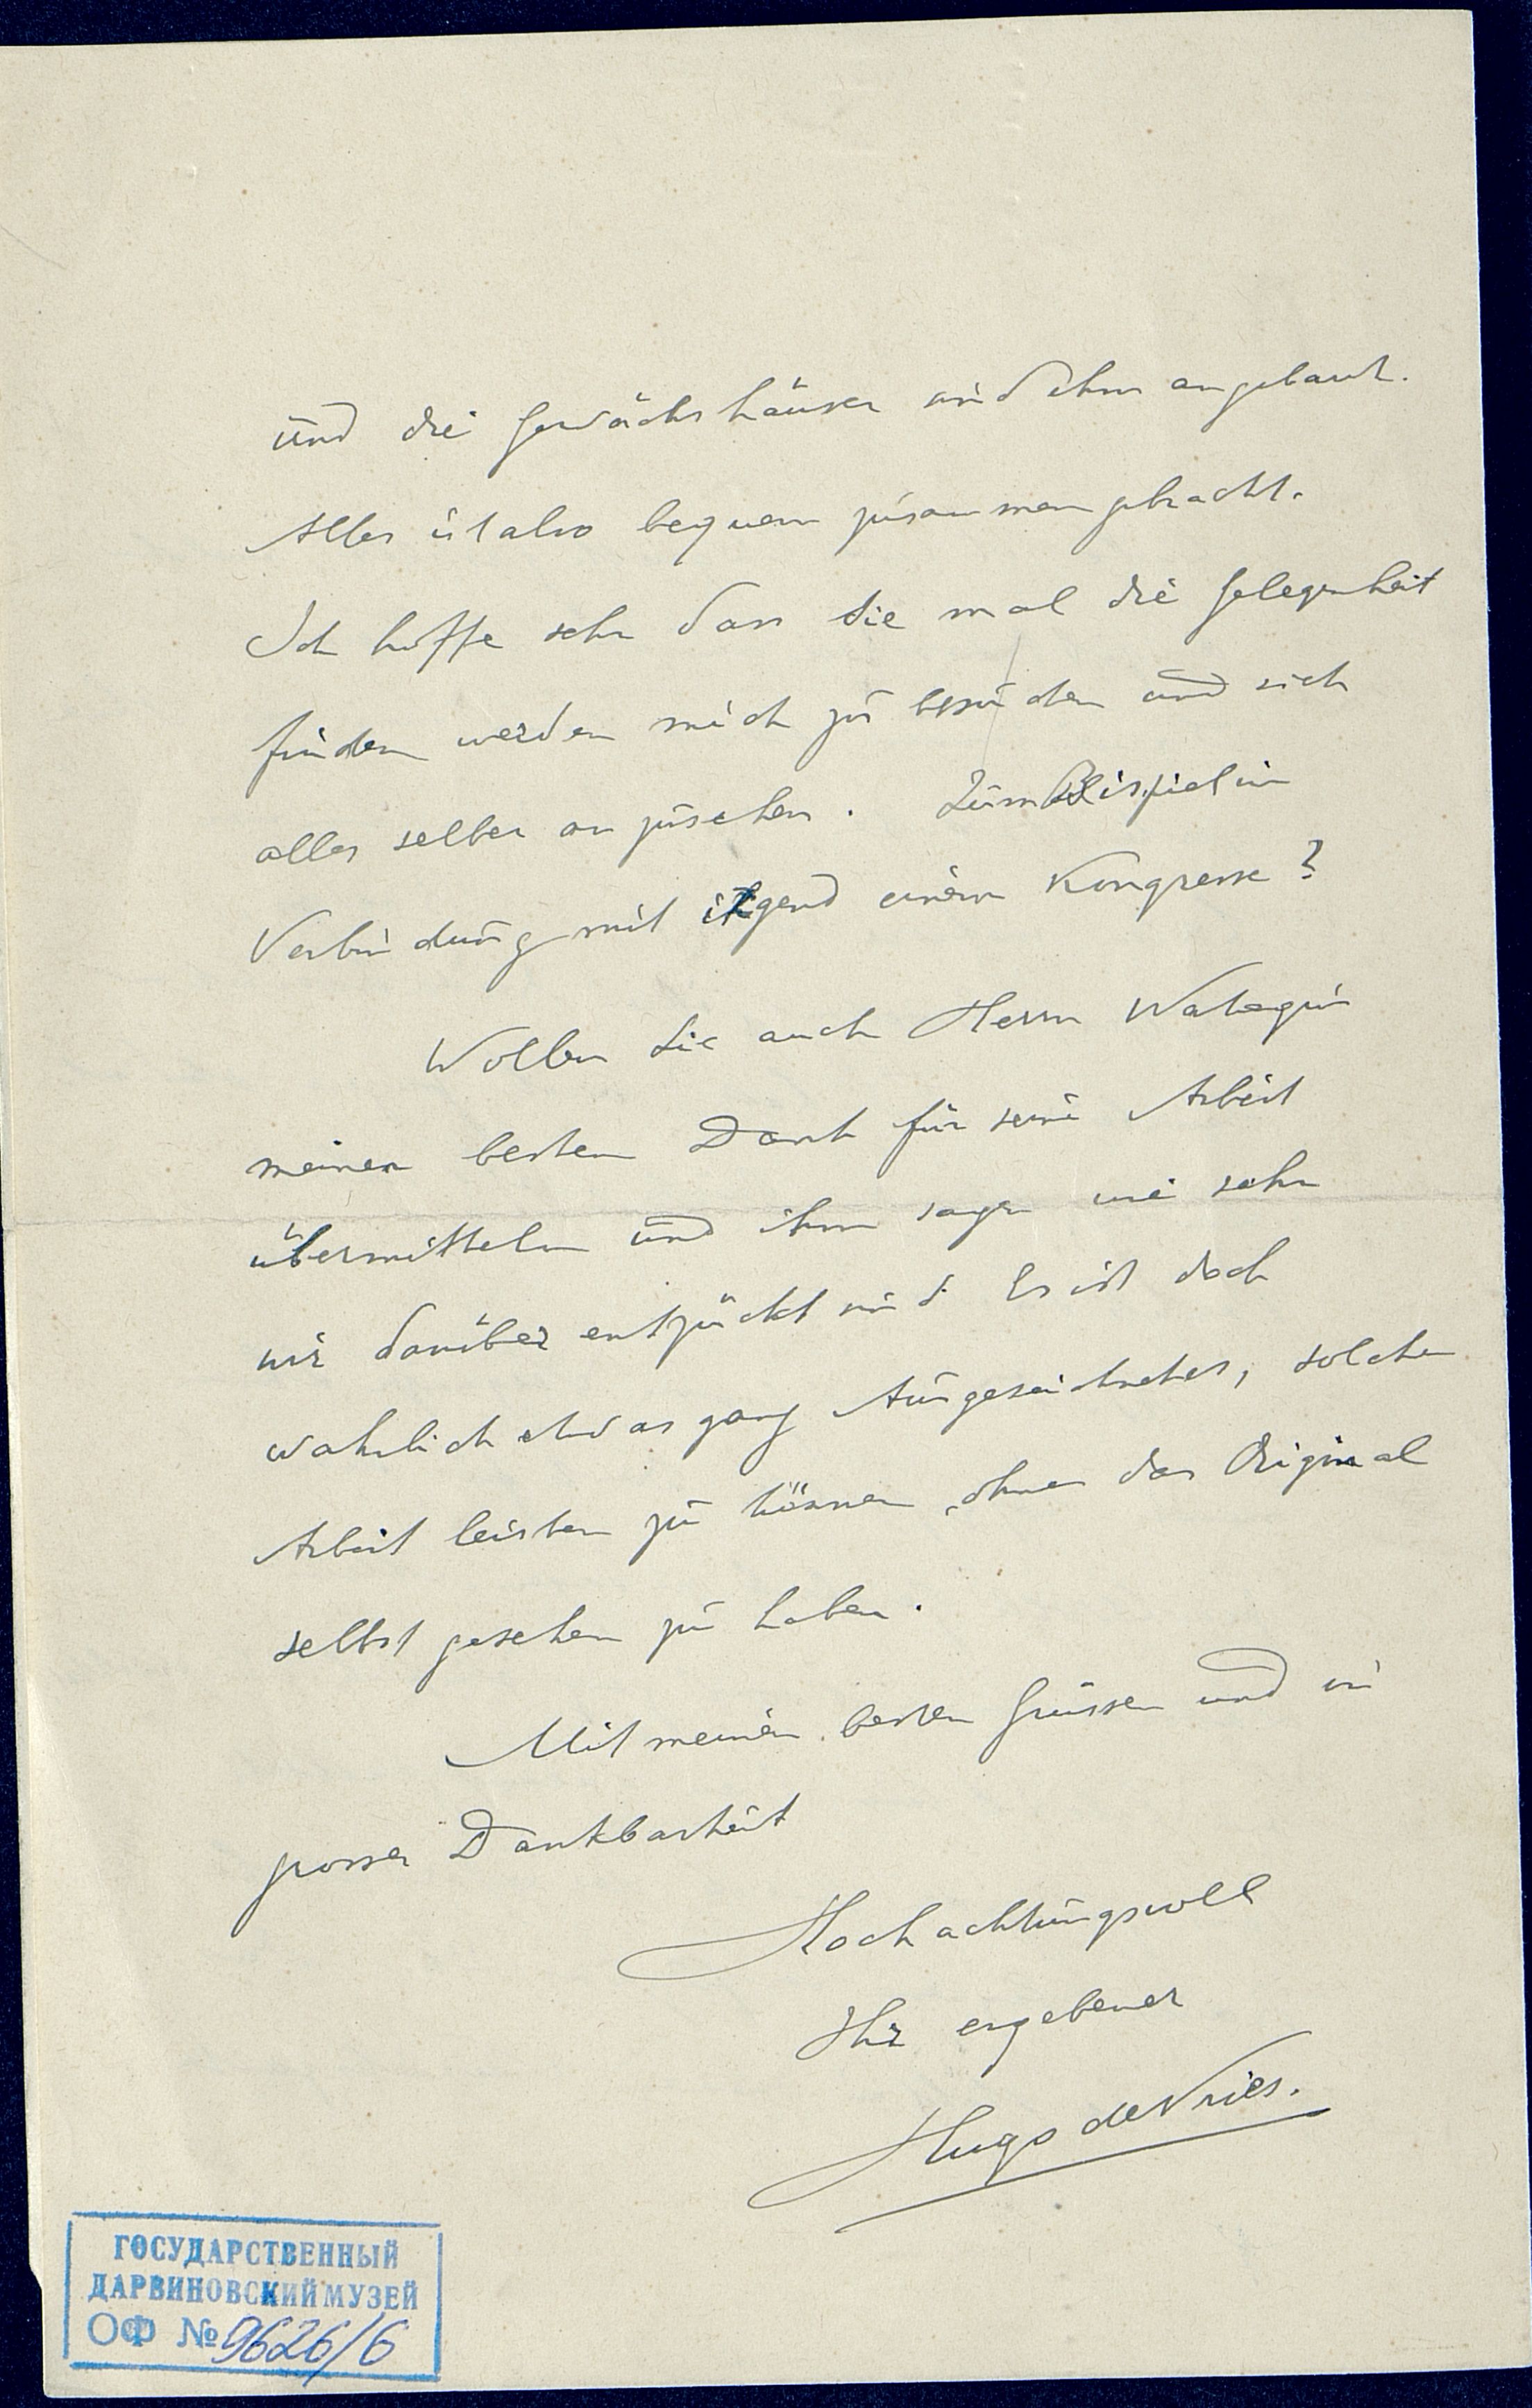 und die Gewächshäuser sind ihm angebaut.
Alles ist also bequem zusammengebracht.
Ich hoffe sehr dass Sie mal die Gelegenheit
finden werden mich zu besuchen und sich
alles selber anzusehen. Zum Beispiel in
Verbindung mit irgend einem Kongresse?
Wollen Sie auch Herrn Watagin
meinen besten Dank für seine Arbeit
übermitteln und ihm sagen wie sehr
wir darüber entzückt sind. Es ist doch
wahrlich etwas ganz Ausgezeichnetes, solche
Arbeit leisten zu können, ohne das Original
selbst gesehen zu haben.
Mit meinen besten Grüssen und in
grosser Dankbarkeit
Hochachtungsvoll
Ihr ergebener
Hugo de Vries.
ГОСУДАРСТВЕННЫЙ
ДАРВИНОВСКИЙ МУЗЕЙ
ОФ № 9626/6